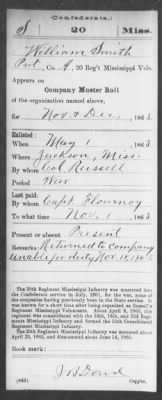 (Confederate.)
S 20 Miss.
William Smith
Pvt, Co. A, 20 Reg't Mississippi Vols.
Appears on
Company Muster Roll
of the organization named above,
for Nov & Dec, 1863
Enlisted:
When May 1 1863
Where Jackson, Miss
By whom Col Russell
Period War
Last paid:
By whom Capt Flournoy
To what time Nov. 1, 1863
Present or absent Present
Remarks: Returned to Company
unable for duty Nov 15, 1863
The 20th Regiment Mississippi Infantry was mustered into
the Confederate service in July, 1861, for the war, some of
the companies having previously been in the State service. It
was known for a short time after being organized as Russell's
Regiment Mississippi Volunteers. About April 9, 1865, this
regiment was consolidated with the
Regiments Mississippi Infantry and formed the 15th Consolidated
Regiment Mississippi Infantry.
The 20th Regiment Mississippi Infantry was surrendered about
April 26, 1865, and
Book mark:
J B Dowd
(642) Copyist.